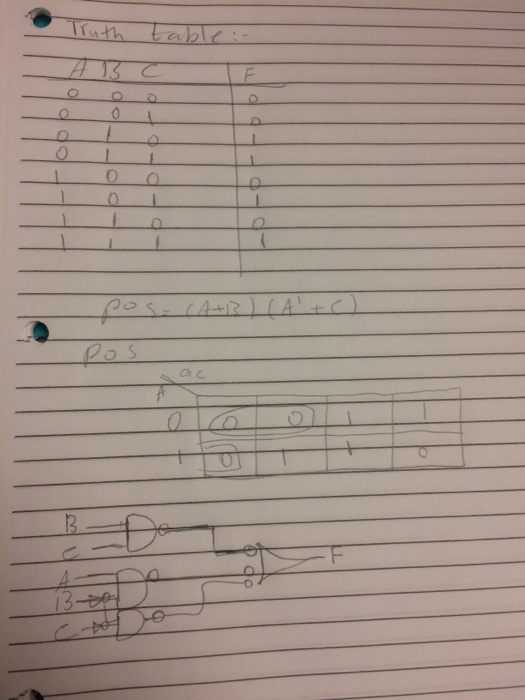 Truth table:-
A B C F
0 0 0 0
0 0 1 0
0 1 0 1
0 1 1 1
1 0 0 0
1 0 1 1
1 1 0 0
1 1 1 1
POS = (A+B) (A' + C)
POS
A
0 0 0 1 1
1 0 1 1 0
B
C
A
B
C
F